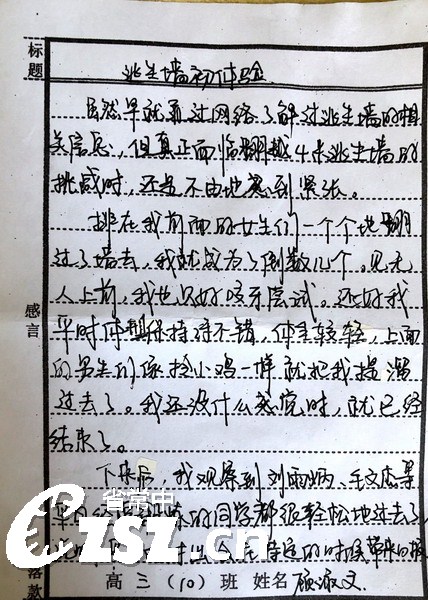 标题
逃生墙初体验
虽然早就通过网络了解过逃生墙的相
关信息，但真正面临翻越4米逃生墙的
挑战时，还是不由地感到紧张。
排在我前面的女生们一个个地翻
过了墙去，我就成为了倒数几个。见无
人上前，我也只好咬牙尝试。还好我
平时体型保持得不错，体重较轻，上面
的男生们像拎小鸡一样就把我提溜
过去了。我还没什么感觉时，就已经
结束了。
感言
下来后，我观察到刘雨炳、毛文杰
的同学都很轻松地过去了
的时候
落款
高三（10）班 姓名 顾淑文
省常中
czsz.cn